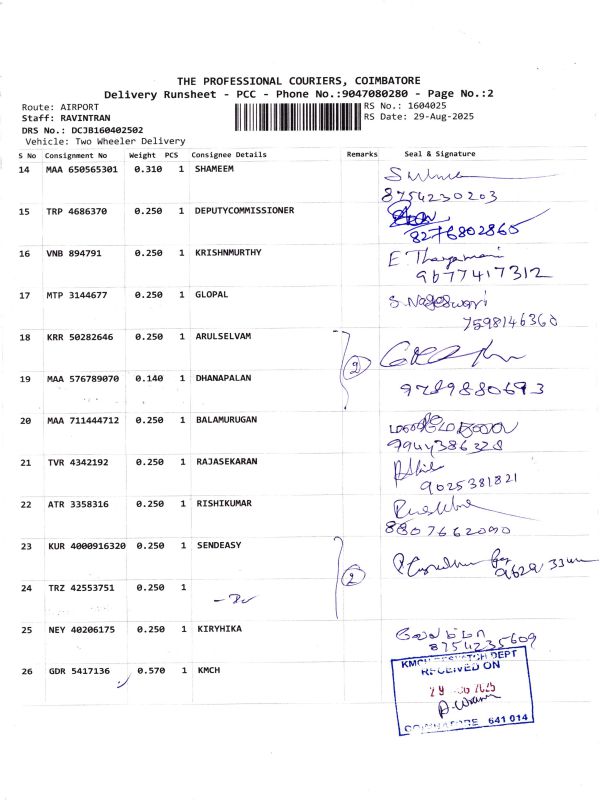 THE PROFESSIONAL COURIERS, COIMBATORE
Delivery Runsheet - PCC - Phone No.:9047080280 - Page No.:2
Route: AIRPORT RS No.: 1604025
Staff: RAVINTRAN RS Date: 29-Aug-2025
DRS No.: DCJB160402502
Vehicle: Two Wheeler Delivery
S No Consignment No Weight PCS Consignee Details Remarks Seal & Signature
14 MAA 650565301 0.310 1 SHAMEEM
8754230203
15 TRP 4686370 0.250 1 DEPUTYCOMMISSIONER
8276802865
16 VNB 894791 0.250 1 KRISHNMURTHY E. Thangamani
9677417312
17 MTP 3144677 0.250 1 GLOPAL S. Nageswari
7598146360
18 KRR 50282646 0.250 1 ARULSELVAM
2
19 MAA 576789070 0.140 1 DHANAPALAN 9789880693
20 MAA 711444712 0.250 1 BALAMURUGAN
9944386328
21 TVR 4342192 0.250 1 RAJASEKARAN
9025381821
22 ATR 3358316 0.250 1 RISHIKUMAR
8807662090
23 KUR 4000916320 0.250 1 SENDEASY
2
24 TRZ 42553751 0.250 1
25 NEY 40206175 0.250 1 KIRYHIKA
8754235609
26 GDR 5417136 0.570 1 KMCH
KMCH DESPATCH DEPT
RECEIVED ON
29 AUG 2025
COIMBATORE 641 014